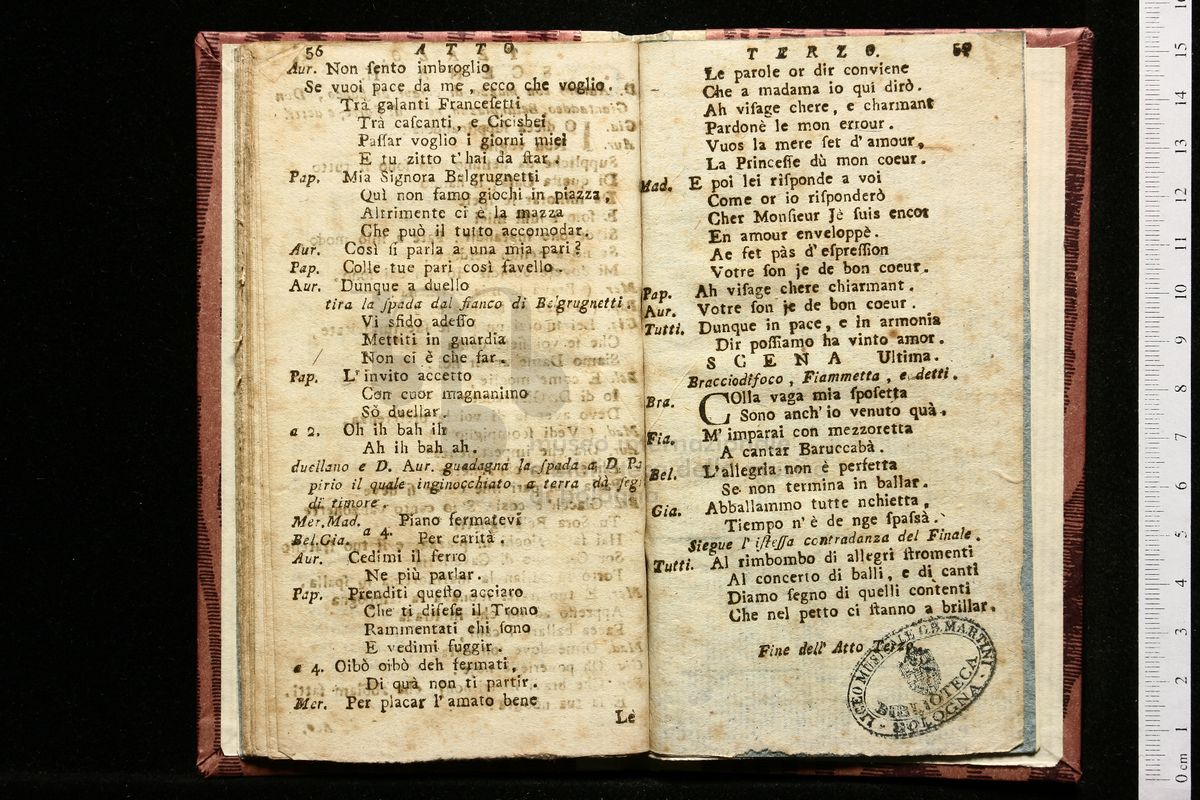 56 ATTO
Aur. Non sento imbroglio
Se vuoi pace da me, ecco che voglio.
Trà galanti Francesetti
Trà cascanti, e Cicisbei
Passar voglio i giorni miei
E tu zitto t'hai da star.
Pap. Mia Signora Belgrugnetti
Quì non famo giochi in piazza,
Altrimente ci è la mazza
Che può il tutto accomodar.
Aur. Così si parla a una mia pari?
Pap. Colle tue pari così favello.
Aur. Dunque a duello
tira la spada dal fianco di Belgrugnetti.
Vi sfido adesso
Mettiti in guardia
Non ci è che far.
Pap. L'invito accetto
Con cuor magnanimo
Sò duellar.
a 2. Oh ih bah ih
Ah ih bah ah.
duellano e D. Aur. guadagna la spada a D. Pa
pirio il quale inginocchiato a terra dà segi
di timore.
Mer. Mad. Piano fermatevi
Bel. Gia. a 4. Per carità.
Aur. Cedimi il ferro
Ne più parlar.
Pap. Prenditi questo acciaro
Che ti difese il Trono
Rammentati chi sono
E vedimi fuggir.
a 4. Oibò oibò deh fermati,
Di quà non ti partir.
Mer. Per placar l'amato bene
Le
TERZO. 59
Le parole or dir conviene
Che a madama io qui dirò.
Ah visage chere, e charmant
Pardonè le mon errour.
Vuos la mere set d'amour,
La Princesse dù mon coeur.
Mad. E poi lei risponde a voi
Come or io risponderò
Cher Monsieur Jè suis encor
En amour enveloppè.
Ae fet pàs d'espression
Votre son je de bon coeur.
Pap. Ah visage chere chiarmant.
Aur. Votre son je de bon coeur.
Tutti. Dunque in pace, e in armonia
Dir possiamo ha vinto amor.
SCENA Ultima.
Bracciodifoco, Fiammetta, e detti.
Bra. COlla vaga mia sposetta
Sono anch'io venuto quà.
Fia. M'imparai con mezzoretta
A cantar Baruccabà.
Bel. L'allegria non è perfetta
Se non termina in ballar.
Gia. Abballammo tutte nchietta,
Tiempo n'è de nge spassà.
Siegue l'istessa contradanza del Finale.
Tutti. Al rimbombo di allegri stromenti
Al concerto di balli, e di canti
Diamo segno di quelli contenti
Che nel petto ci stanno a brillar.
Fine dell'Atto Terzo.
LICEO MUSICALE G.B. MARTINI
BIBLIOTECA
BOLOGNA